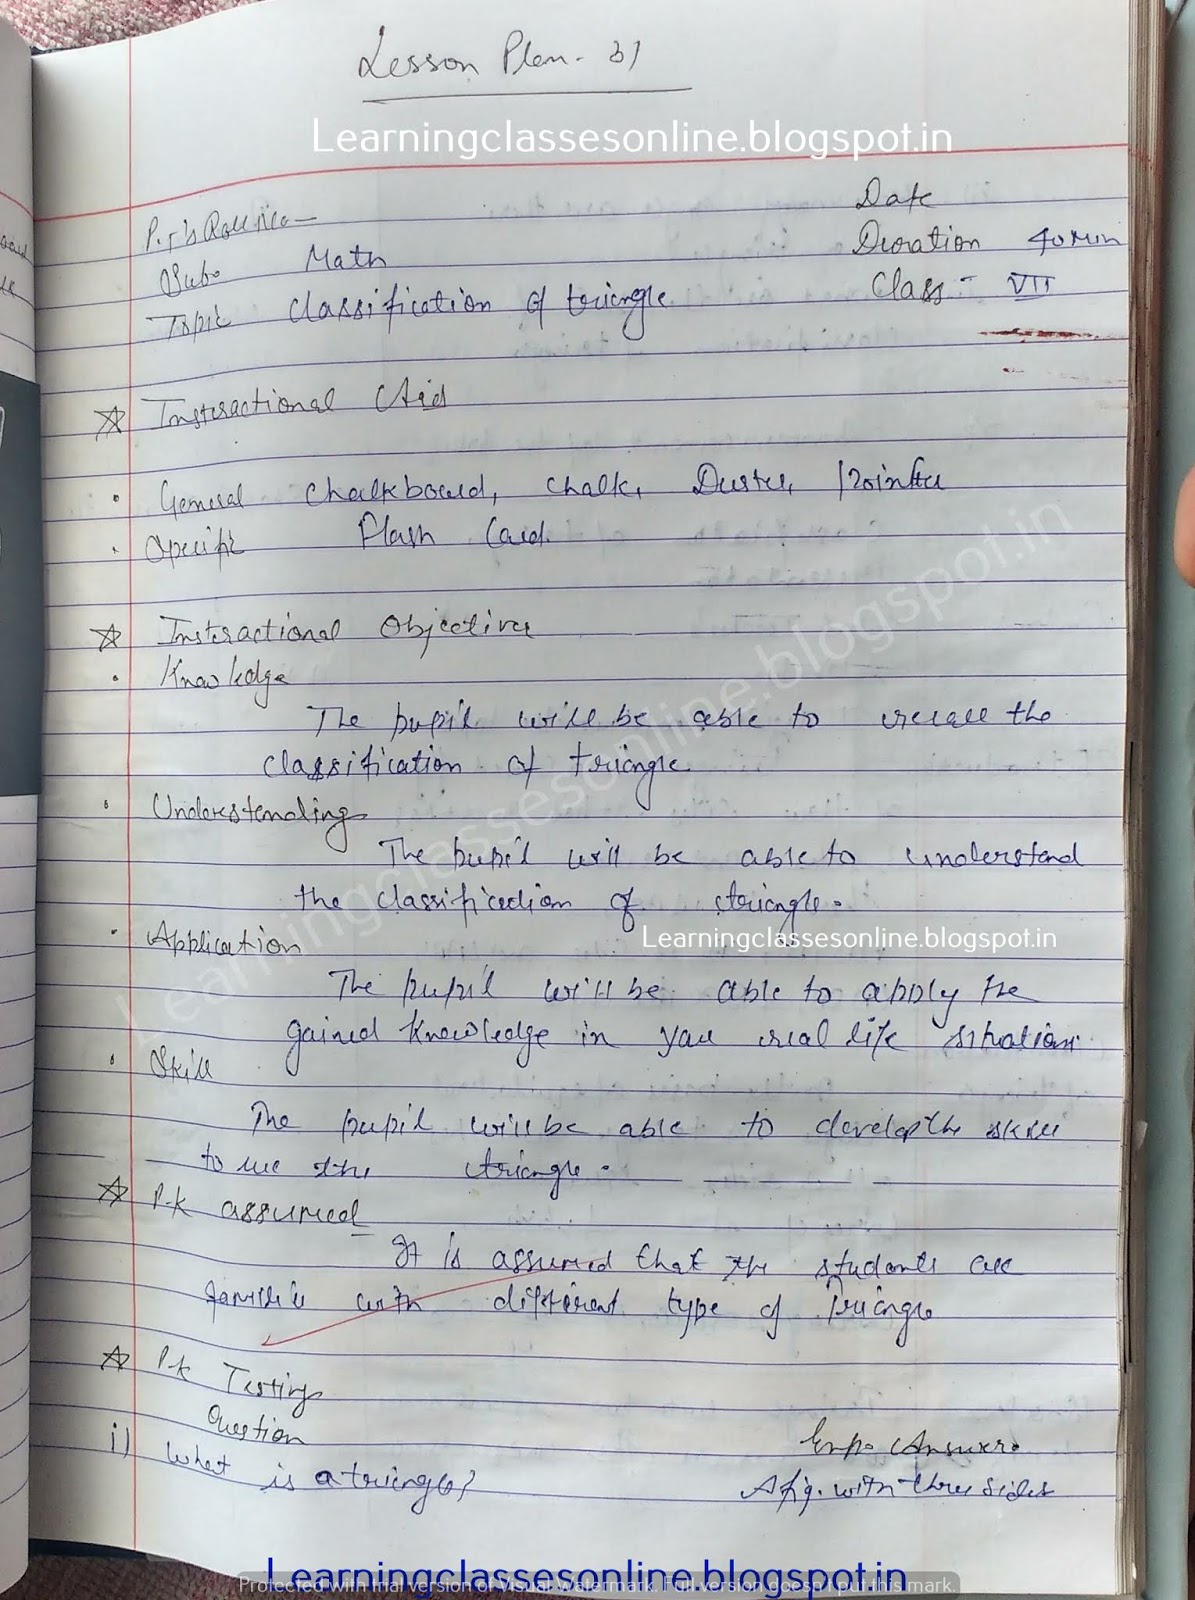 Lesson Plan - 31
Learningclassesonline.blogspot.in
P.T's Roll No — Date
Sub. Math Duration 40 Min
Topic Classification of triangle Class - VII
☆ Instructional Aid
• General Chalkboard, Chalk, Duster, Pointer
• Specific Flash Card.
☆ Instructional Objective
• Knowledge
The pupil will be able to recall the
classification of triangle
• Understanding
The pupil will be able to understand
the classification of triangle.
• Application
Learningclassesonline.blogspot.in
The pupil will be able to apply the
gained knowledge in real life situation.
• Skill
The pupil will be able to develop the skill
to use the triangle.
☆ P.k assumed
It is assumed that the students are
familiar with different type of Triangle
☆ P-k Testing
Question Exp. Answer.
i) What is a triangle? A fig. with three sides
Learningclassesonline.blogspot.in
Learningclassesonline.blogspot.in
Protected with trial version of Visual Watermark. Full version doesn't put this mark.